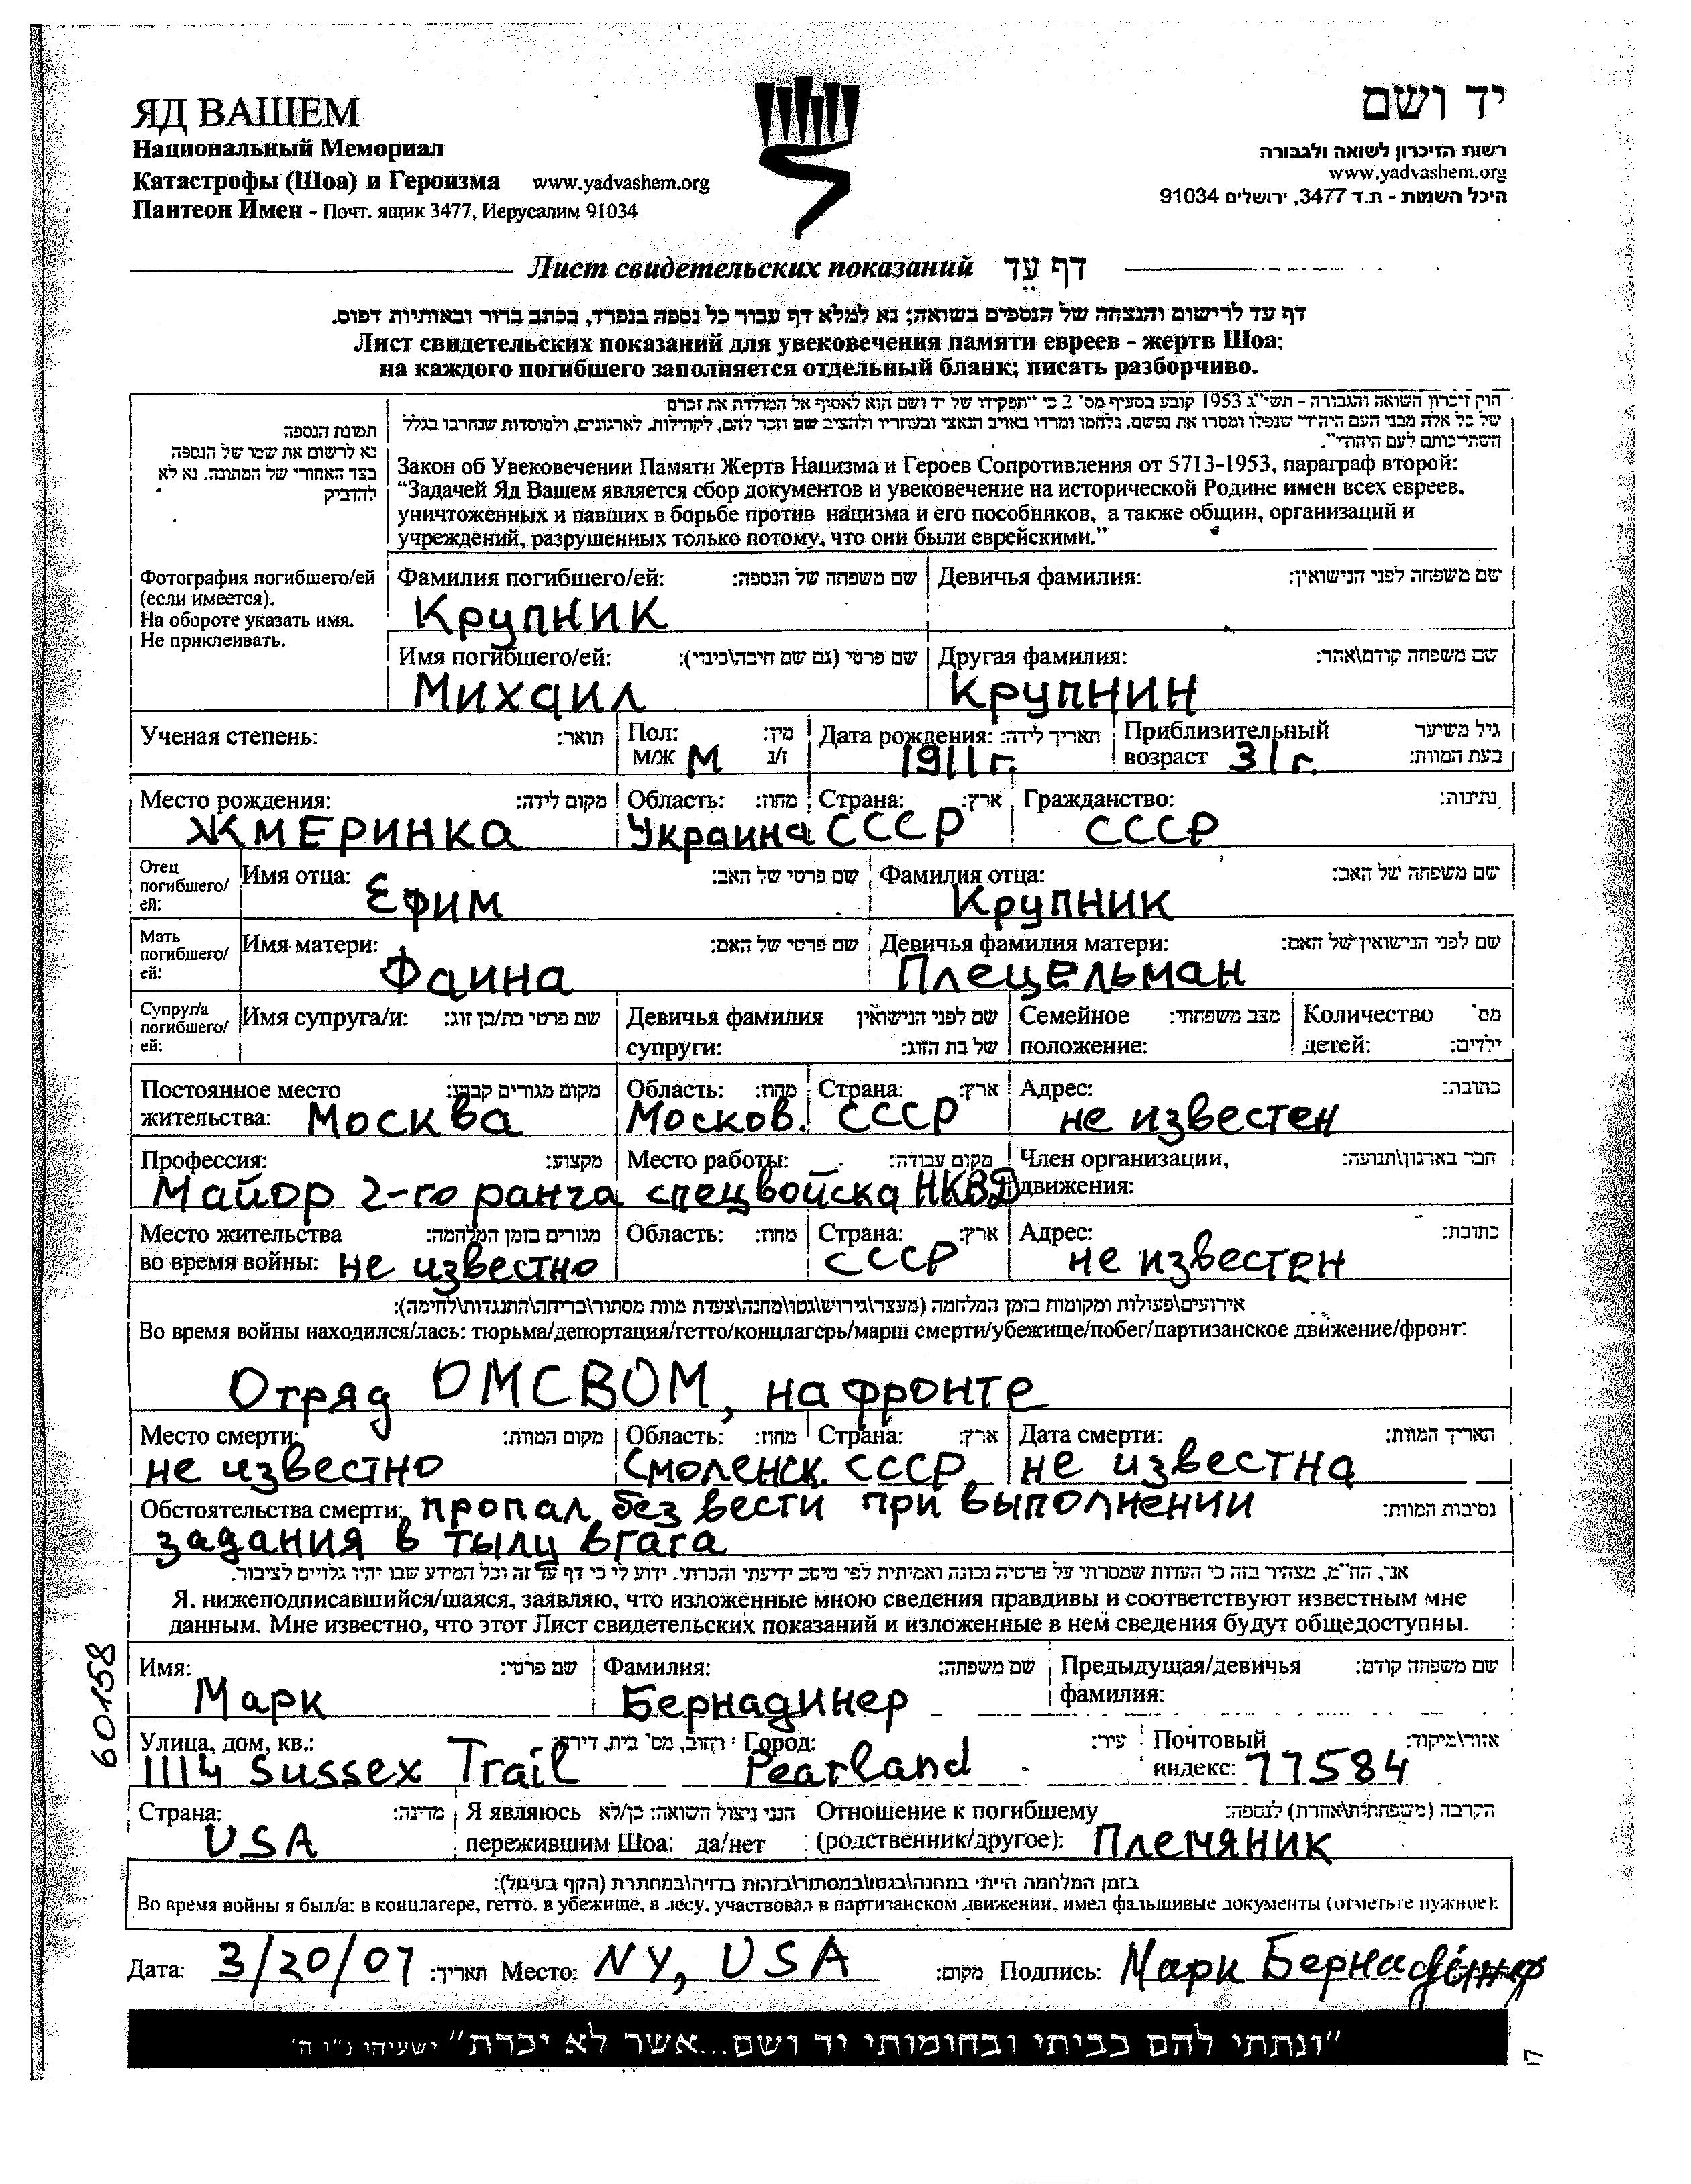 ЯД ВАШЕМ
Национальный Мемориал
Катастрофы (Шоа) и Героизма www.yadvashem.org
Пантеон Имен - Почт. ящик 3477, Иерусалим 91034
יד ושם
רשות הזיכרון לשואה ולגבורה
www.yadvashem.org
היכל השמות - ת.ד 3477, ירושלים 91034
Лист свидетельских показаний דף עֵד
דף עד לרישום והנצחה של הנספים בשואה; נא למלא דף עבור כל נספה בנפרד, בכתב ברור ובאותיות דפוס.
Лист свидетельских показаний для увековечения памяти евреев - жертв Шоа;
на каждого погибшего заполняется отдельный бланк; писать разборчиво.
תמונת הנספה
נא לרשום את שמו של הנספה
בצד האחורי של התמונה. נא לא
להדביק
Фотография погибшего/ей
(если имеется).
На обороте указать имя.
Не приклеивать.
חוק זיכרון השואה והגבורה - תשי"ג 1953 קובע בסעיף מס' 2 כי "תפקידו של יד ושם הוא לאסוף אל המולדת את זכרם
של כל אלה מבני העם היהודי שנפלו ומסרו את נפשם, נלחמו ומרדו באויב הנאצי ובעוזריו ולהציב שם וזכר להם, לקהילות, לארגונים, ולמוסדות שנחרבו בגלל
השתייכותם לעם היהודי".
Закон об Увековечении Памяти Жертв Нацизма и Героев Сопротивления от 5713-1953, параграф второй:
“Задачей Яд Вашем является сбор документов и увековечение на исторической Родине имен всех евреев,
уничтоженных и павших в борьбе против нацизма и его пособников, а также общин, организаций и
учреждений, разрушенных только потому, что они были еврейскими.”
Фамилия погибшего/ей: שם משפחה של הנספה: Девичья фамилия: שם משפחה לפני הנישואין:
Крупник
Имя погибшего/ей: שם פרטי (גם שם חיבה\כינוי): Другая фамилия: שם משפחה קודם\אחר:
Михаил Крупнин
Ученая степень: תואר: Пол: מין: Дата рождения: תאריך לידה: Приблизительный גיל משוער
м/ж М ז/נ 1911г. возраст 31г. בעת המוות:
Место рождения: מקום לידה: Область: מחוז: Страна: ארץ: Гражданство: נתינות:
Жмеринка Украина СССР СССР
Отец погибшего/ей: Имя отца: שם פרטי של האב: Фамилия отца: שם משפחה של האב:
Ефим Крупник
Мать погибшего/ей: Имя матери: שם פרטי של האם: Девичья фамилия матери: שם לפני הנישואין של האם:
Фаина Плецельман
Супруг/а погибшего/ей: Имя супруга/и: שם פרטי בת/בן זוג: Девичья фамилия שם לפני הנישואין Семейное מצב משפחתי: Количество מס'
супруги: של בת הזוג: положение: детей: ילדים:
Постоянное место מקום מגורים קבוע: Область: מחוז: Страна: ארץ: Адрес: כתובת:
жительства: Москва Москов. СССР не известен
Профессия: מקצוע: Место работы: מקום עבודה: Член организации, חבר בארגון\תנועה:
Майор 2-го ранга спецвойска НКВД движения:
Место жительства מגורים בזמן המלחמה: Область: מחוז: Страна: ארץ: Адрес: כתובת:
во время войны: не известно СССР не известен
אירועים\פעולות ומקומות בזמן המלחמה (מעצר\גירוש\גטו\מחנה\צעדת מוות מסתור\בריחה\התנגדות\לחימה):
Во время войны находился/лась: тюрьма/депортация/гетто/концлагерь/марш смерти/убежище/побег/партизанское движение/фронт:
Отряд ОМСВОМ, на фронте
Место смерти: מקום המוות: Область: מחוז: Страна: ארץ: Дата смерти: תאריך המוות:
не известно Смоленск. СССР. не известна
Обстоятельства смерти: пропал без вести при выполнении נסיבות המוות:
задания в тылу врага
אני, הח"מ, מצהיר בזה כי העדות שמסרתי על פרטיה נכונה ואמיתית לפי מיטב ידיעתי והכרתי. ידוע לי כי דף עד זה וכל המידע שבו יהיו גלויים לציבור.
Я, нижеподписавшийся/шаяся, заявляю, что изложенные мною сведения правдивы и соответствуют известным мне
данным. Мне известно, что этот Лист свидетельских показаний и изложенные в нем сведения будут общедоступны.
60158
Имя: שם פרטי: Фамилия: שם משפחה: Предыдущая/девичья שם משפחה קודם:
Марк Бернадинер фамилия:
Улица, дом, кв.: רחוב, מס' בית, דירה: Город: עיר: Почтовый אזור\מיקוד:
1114 Sussex Trail Pearland индекс: 77584
Страна: מדינה: Я являюсь הנני ניצול השואה: כן/לא Отношение к погибшему הקרבה (משפחתית\אחרת) לנספה:
USA пережившим Шоа: да/нет (родственник/другое): племяник
בזמן המלחמה הייתי במחנה\בגטו\במסתור\בזהות בדויה\במחתרת (הקף בעיגול):
Во время войны я был/а: в концлагере, гетто, в убежище, в лесу, участвовал в партизанском движении, имел фальшивые документы (отметьте нужное):
Дата: 3/20/07 תאריך: Место: NY, USA מקום: Подпись: Марк Бернадинер
"ונתתי להם בביתי ובחומותי יד ושם...אשר לא יכרת" ישעיהו נ"ו ה'